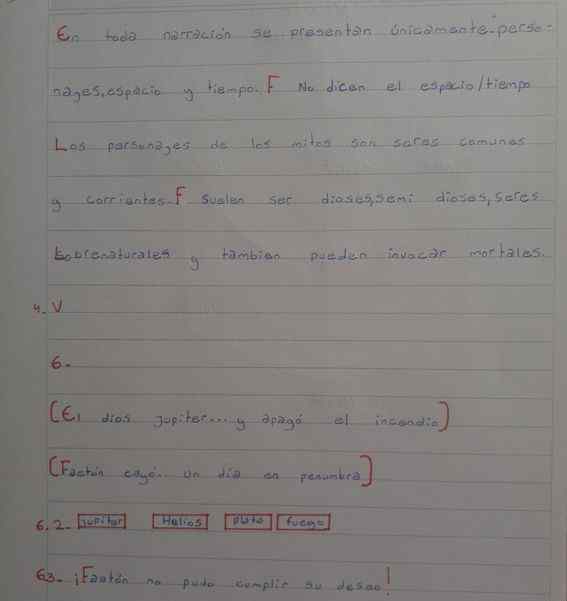 En toda narración se presentan únicamente: perso-
nages, espacio y tiempo. F No dicen el espacio/tiempo
Los personages de los mitos son seres comunes
y corrientes. F Suelen ser dioses, semi dioses, seres
sobrenaturales y tambien pueden invocar mortales.
4. V
6.
(El dios jupiter... y apagó el incendio)
(Faetón cayó... un día en penumbra)
6.2- jupiter Helios pluto fuego
63- ¡Faetón no pudo cumplir su deseo!